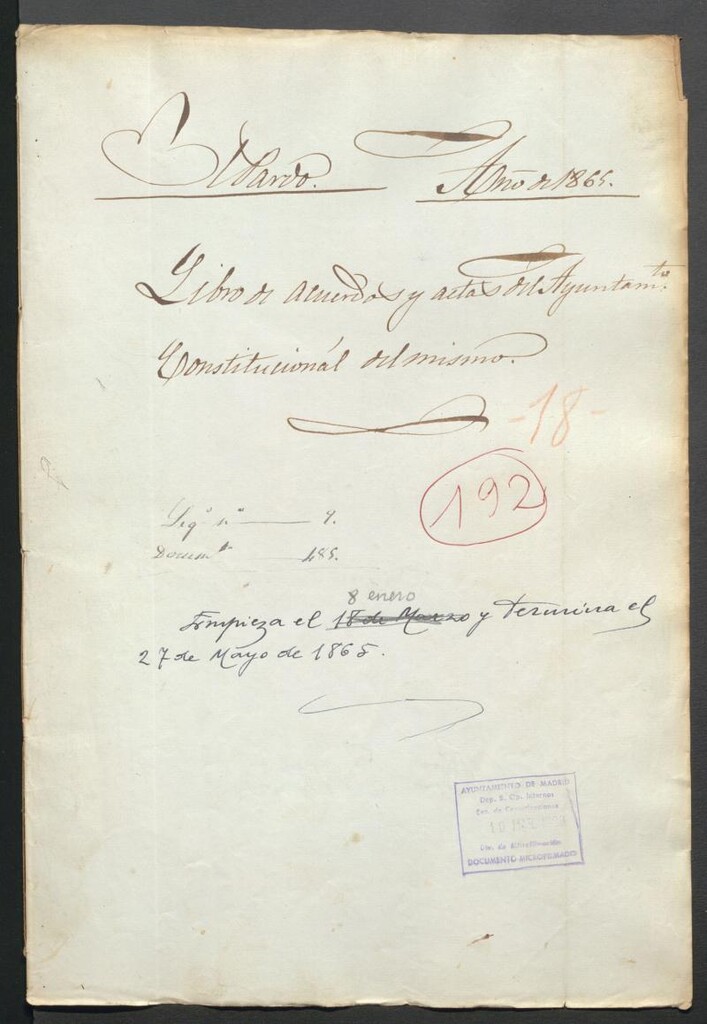 El Pardo. Año de 1865.
Libro de acuerdos y actas del Ayuntam.to
Constitucional del mismo.
-18-
192
Leg.o n.o 9.
Docum.to 485.
8 enero
Empieza el 18 de Marzo y termina el
27 de Mayo de 1865.
AYUNTAMIENTO DE MADRID
Dep. S. Co. Internos
DOCUMENTO MICROFILMADO